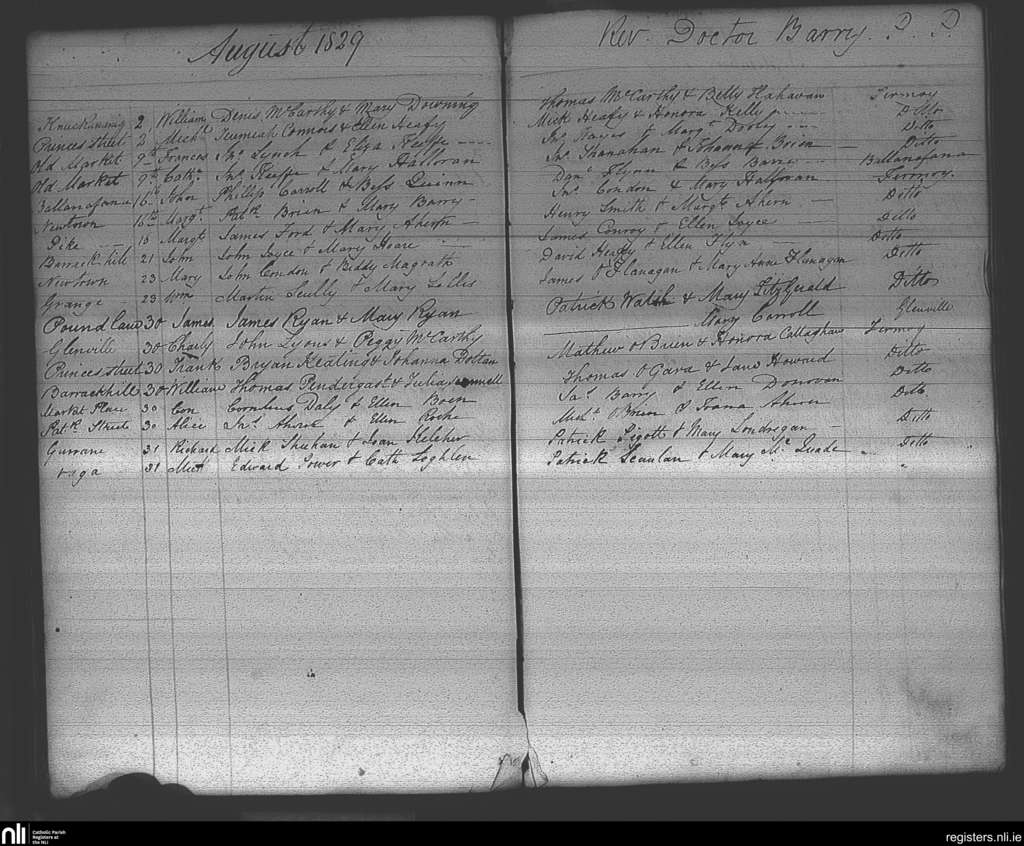 August 1829
Rev. Doctor Barry. P. P.
2 William Denis McCarthy & Mary Downing
Princes Street 2 Michl Jeremiah Connors & Ellen Heafy
Old Market 9th Frances Jno. Lynch & Eliza Keeffe
Old Market 9th Cathe. Jno. Keeffe & Mary Halloran
Ballanafana 16th John Phillip Carroll & Bess Quinn
Newtown 16th Margt. Patk. Brien & Mary Barry
Pike Margt James Ford & Mary Ahern
Barrack hill 21 John John Joyce & Mary Hoare
Newtown 23 Mary John Condon & Biddy Magrath
Grange 23 Wm Martin Scully & Mary
Pound lane 30 James James Ryan & Mary Ryan
Glenville 30 Charly John Lyons & Peggy McCarthy
Princes street 30 Frank Bryan Keating & Johanna
Barrackhill 30 William Thomas Pendergast & Julia
Market Place 30 Con Cornelius Daly & Ellen Brien
Patk. Street 30 Alice Jno. Ahern & Ellen Roche
Gurrane 31 Rickard Mick Sheehan & Joan Keleher
31 Mick Edward Power & Cath Loghlen
Thomas McCarthy & Betty Flahavan Fermoy
Mick Heafy & Honora Kelly Ditto
Jno. & Margt. Ditto
Jno. Shanahan & Johanna Brien Ditto
Danl. Flynn & Bess Barry Ballanafana
Jno. Condon & Mary Halloran Fermoy.
Henry Smith & Margt. Ahern Ditto
James Conroy & Ellen Joyce Ditto
David Heafy & Ellen Ditto
James O Flanagan & Mary Anne Flanagan Ditto
Patrick Walsh & Mary Fitzgerald Ditto
Mary Carroll Glenville
Mathew OBrien & Honora Callaghan Fermoy
Thomas O Gara & Howard Ditto
Jas. Barry & Ellen Donovan Ditto
Michl. OBrien & Ahern Ditto
Patrick Pigott & Mary Londregan Ditto
Patrick Scanlan & Mary Mc Quade Ditto
nli
Catholic Parish
Registers at
the NLI
registers.nli.ie